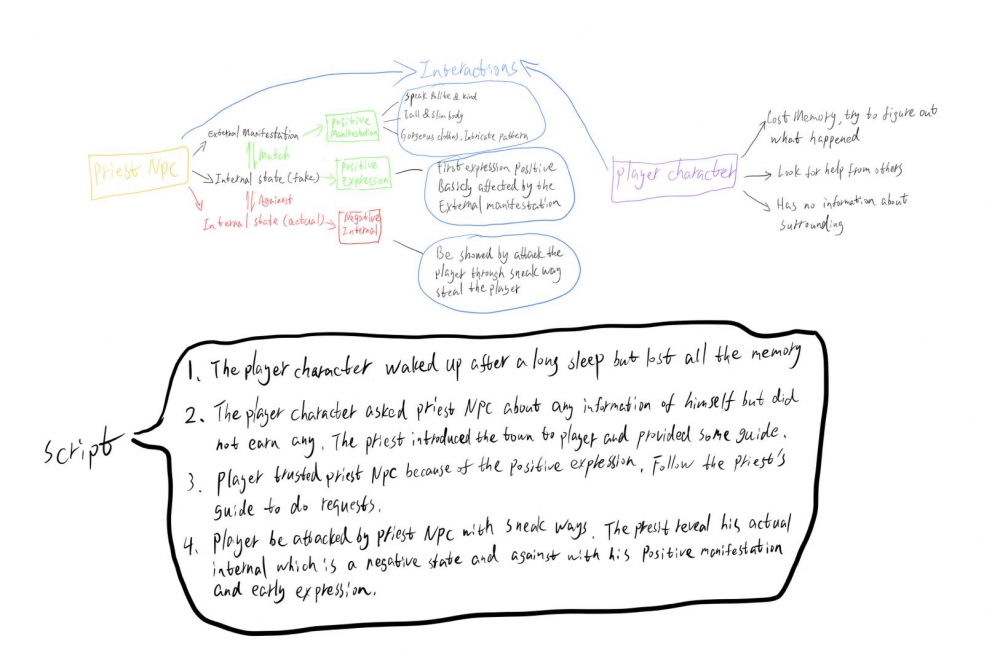 Interactions
Priest NPC
External Manifestation
Match
Internal state (fake)
Against
Internal state (actual)
Positive
Manifestation
Positive
Expression
Negative
Internal
Speak Polite & kind
Tall & Slim body
Gorgenus clothes, Intricate pattern
First expression positive
Bassicly affected by the
External manifestation
Be showed by attack the
player through sneak way
steal the player
player character
Lost Memory, try to figure out
what happened
Look for help from others
Has no information about
surrounding
Script
1. The player character waked up after a long sleep but lost all the memory
2. The player character asked priest NPC about any information of himself but did
not earn any. The priest introduced the town to player and provided some guide.
3. Player trusted priest NPC because of the positive expression. Follow the priest's
guide to do requests.
4. Player be attacked by priest NPC with sneak ways. The presit reveal his actual
internal which is a negative state and against with his Positive manifestation
and early expression.